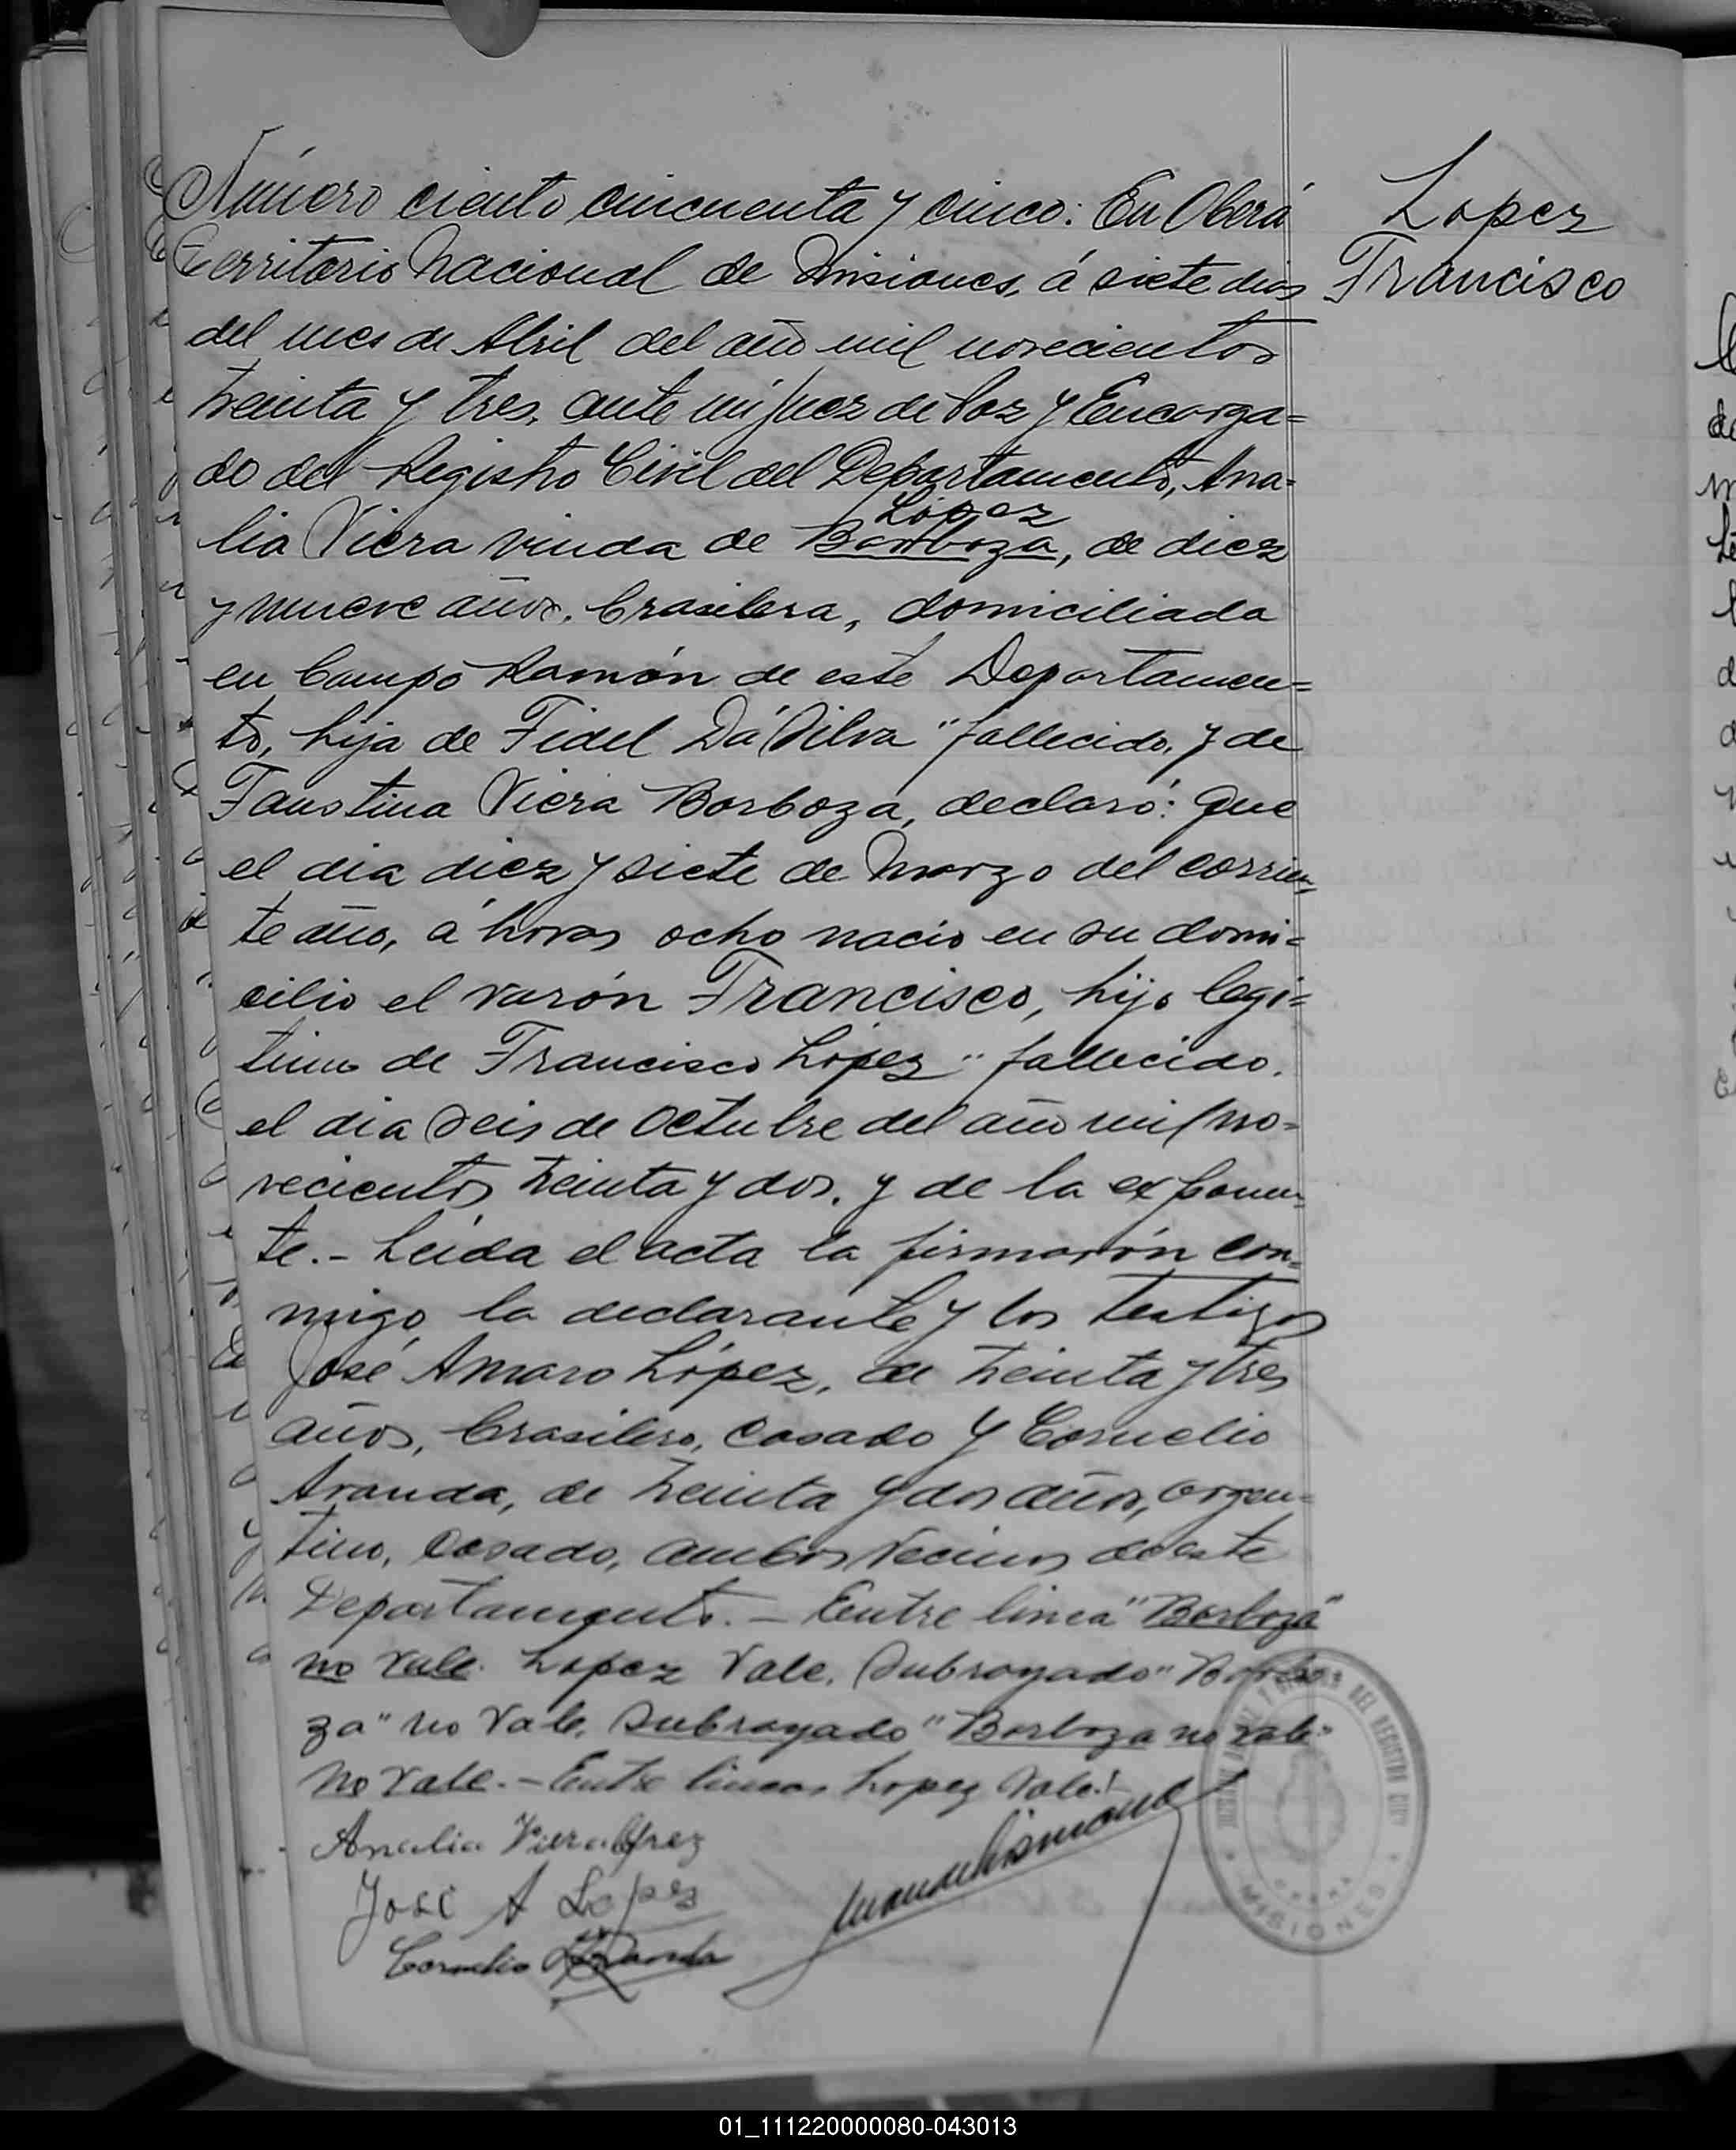 Número ciento cincuenta y cinco: En Oberá
Territorio Nacional de Misiones, á siete dias
del mes de Abril del año mil novecientos
treinta y tres, ante mi Juez de Paz y Encarga=
do del Registro Civil del Departamento, Ana=
López
lia Viera viuda de Borboza, de diez
y nueve años, brasilera, domiciliada
en Campo Ramón de este Departamen=
to, hija de Fidel Dá Silva " fallecido, y de
Faustina Viera Borboza, declaró: Que
el dia diez y siete de Marzo del corrien=
te año, á horas ocho nacio en su domi=
cilio el varón Francisco, hijo legi=
timo de Francisco López " fallecido.
el dia Seis de Octubre del año mil no=
vecientos treinta y dos, y de la exponen=
te.- Leida el acta la firmarón con=
migo la declarante y los testigos
José Amaro López, de treinta y tres
años, brasilero, casado y Cornelio
Aranda, de treinta y dos años, argen=
tino, casado, ambos vecinos de este
Departamento.- Entre linea "Borboza"
no vale. Lopez Vale. Subrayado "Borbo
za" no Vale. Subrayado "Borboza no vale"
no vale.- Entre lineas Lopez Vale!
Analia Viera Lopez
José A Lopez
Cornelio Aranda
Lopez
Francisco
DEL REGISTRO CIVIL
OBERA
MISIONES
01_111220000080-043013